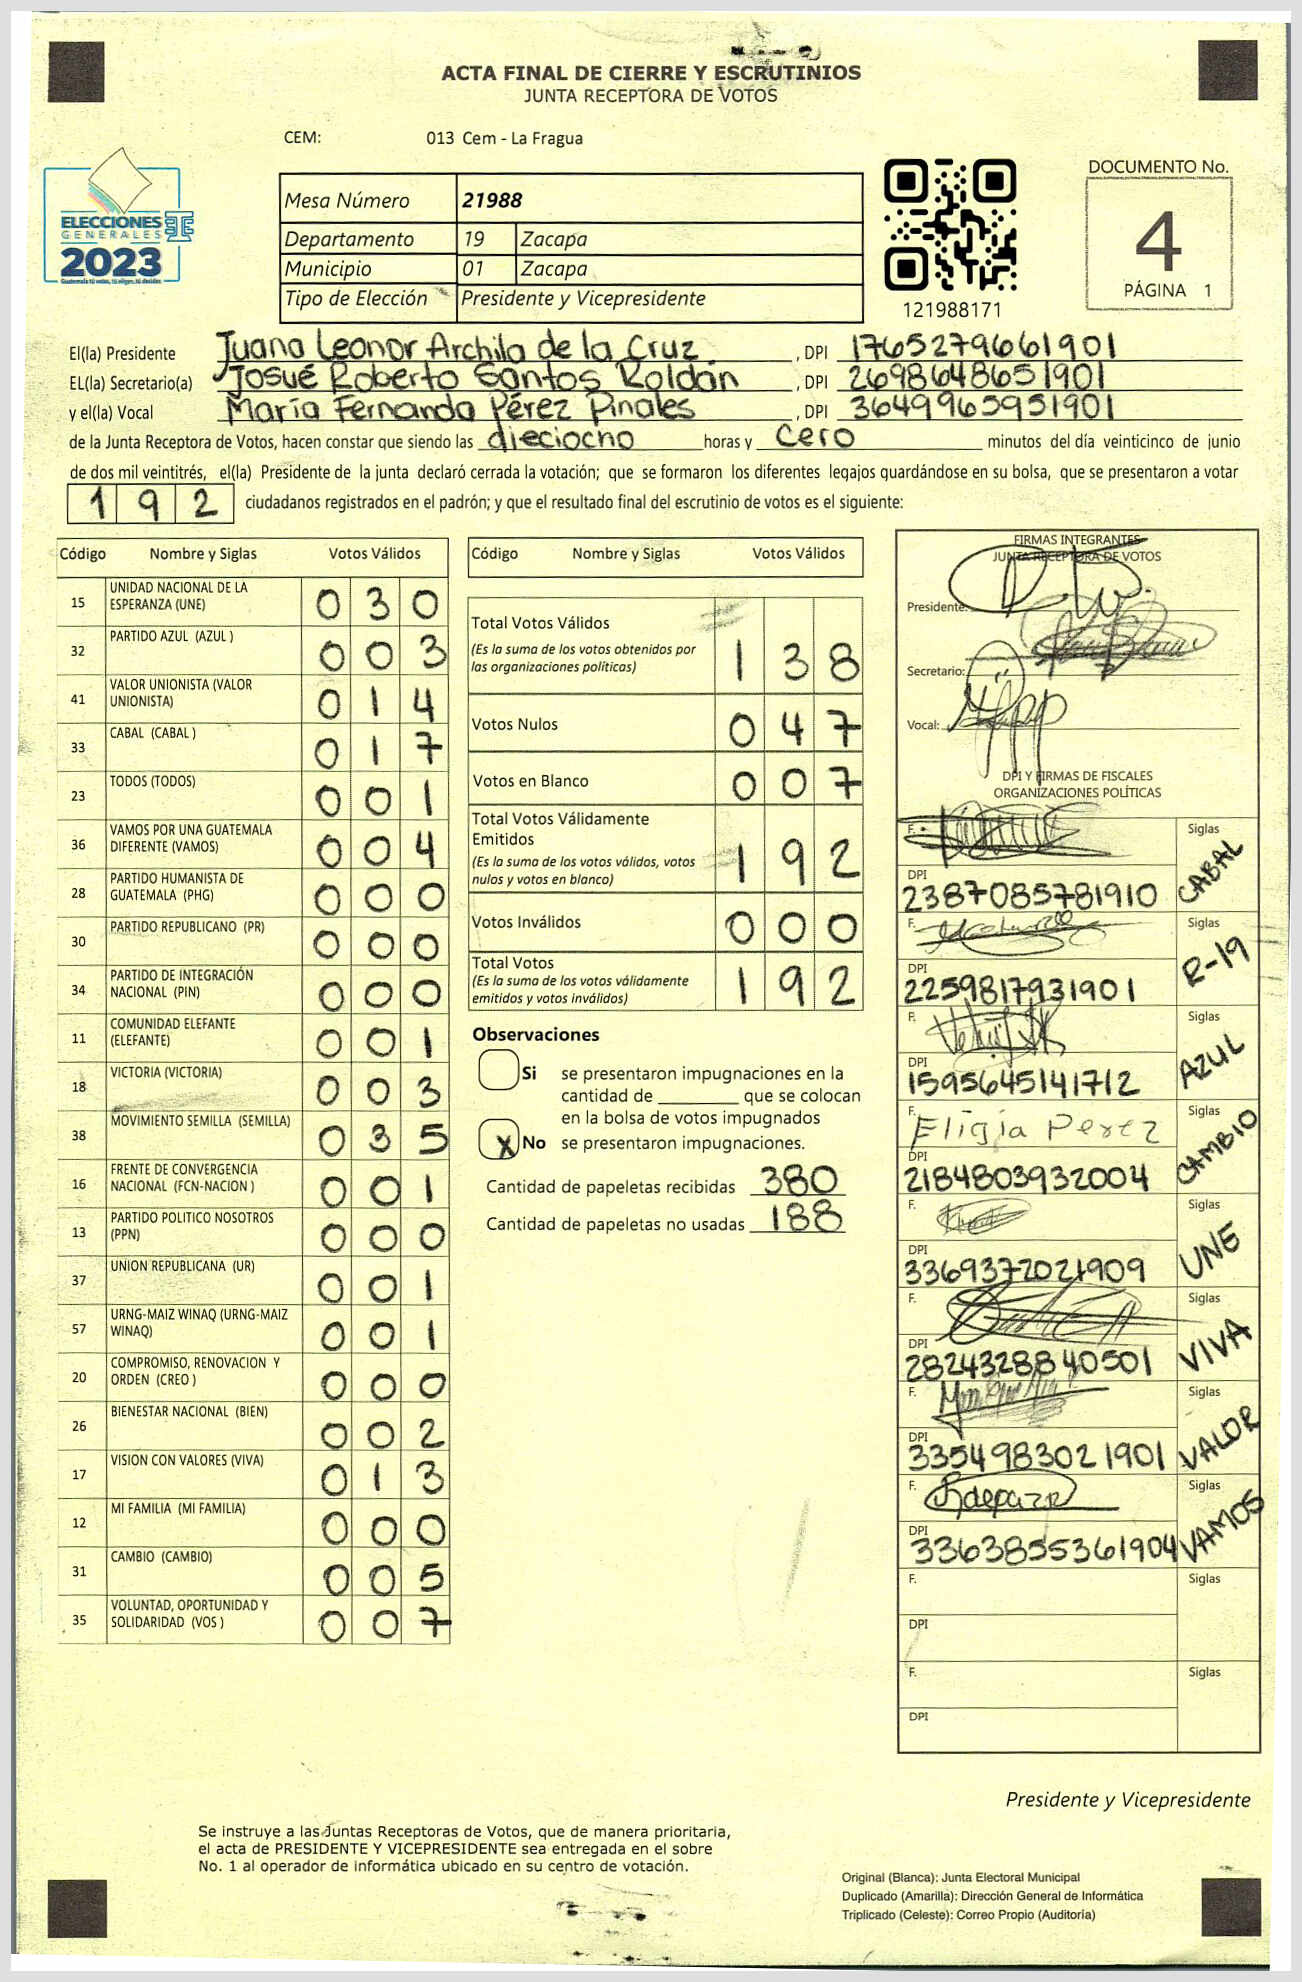 ACTA FINAL DE CIERRE Y ESCRUTINIOS
JUNTA RECEPTORA DE VOTOS
CEM: 013 Cem - La Fragua
ELECCIONES
GENERALES
2023
Guatemala tú votas, tú eliges, tú decides
Mesa Número 21988
Departamento 19 Zacapa
Municipio 01 Zacapa
Tipo de Elección Presidente y Vicepresidente
121988171
DOCUMENTO No.
4
PÁGINA 1
El(la) Presidente Juana Leonor Archila de la Cruz , DPI 1765279661901
EL(la) Secretario(a) Josué Roberto Santos Roldán , DPI 2698648651901
y el(la) Vocal María Fernanda Pérez Pinales , DPI 3649965951901
de la Junta Receptora de Votos, hacen constar que siendo las dieciocho horas y cero minutos del día veinticinco de junio
de dos mil veintitrés, el(la) Presidente de la junta declaró cerrada la votación; que se formaron los diferentes legajos guardándose en su bolsa, que se presentaron a votar
192 ciudadanos registrados en el padrón; y que el resultado final del escrutinio de votos es el siguiente:
Código Nombre y Siglas Votos Válidos
15 UNIDAD NACIONAL DE LA ESPERANZA (UNE) 030
32 PARTIDO AZUL (AZUL ) 003
41 VALOR UNIONISTA (VALOR UNIONISTA) 014
33 CABAL (CABAL ) 017
23 TODOS (TODOS) 001
36 VAMOS POR UNA GUATEMALA DIFERENTE (VAMOS) 004
28 PARTIDO HUMANISTA DE GUATEMALA (PHG) 000
30 PARTIDO REPUBLICANO (PR) 000
34 PARTIDO DE INTEGRACIÓN NACIONAL (PIN) 000
11 COMUNIDAD ELEFANTE (ELEFANTE) 001
18 VICTORIA (VICTORIA) 003
38 MOVIMIENTO SEMILLA (SEMILLA) 035
16 FRENTE DE CONVERGENCIA NACIONAL (FCN-NACION ) 001
13 PARTIDO POLITICO NOSOTROS (PPN) 000
37 UNION REPUBLICANA (UR) 001
57 URNG-MAIZ WINAQ (URNG-MAIZ WINAQ) 001
20 COMPROMISO, RENOVACION Y ORDEN (CREO ) 000
26 BIENESTAR NACIONAL (BIEN) 002
17 VISION CON VALORES (VIVA) 013
12 MI FAMILIA (MI FAMILIA) 000
31 CAMBIO (CAMBIO) 005
35 VOLUNTAD, OPORTUNIDAD Y SOLIDARIDAD (VOS ) 007
Código Nombre y Siglas Votos Válidos
Total Votos Válidos
(Es la suma de los votos obtenidos por las organizaciones políticas) 138
Votos Nulos 047
Votos en Blanco 007
Total Votos Válidamente Emitidos
(Es la suma de los votos válidos, votos nulos y votos en blanco) 192
Votos Inválidos 000
Total Votos
(Es la suma de los votos válidamente emitidos y votos inválidos) 192
Observaciones
Si se presentaron impugnaciones en la
cantidad de ________ que se colocan
en la bolsa de votos impugnados
X No se presentaron impugnaciones.
Cantidad de papeletas recibidas 380
Cantidad de papeletas no usadas 188
FIRMAS INTEGRANTES
JUNTA RECEPTORA DE VOTOS
Presidente:
Secretario:
Vocal:
DPI Y FIRMAS DE FISCALES
ORGANIZACIONES POLÍTICAS
F. Siglas
DPI 2387085781910 CABAL
F. Siglas
DPI 2259817931901 R-19
F. Siglas
DPI 1595645141712 AZUL
F. Eligia Perez Siglas
DPI 2184803932004 CAMBIO
F. Siglas
DPI 3369372021909 UNE
F. Siglas
DPI 2824328840501 VIVA
F. Siglas
DPI 3354983021901 VALOR
F. Siglas
DPI 3363855361904 VAMOS
F. Siglas
DPI
F. Siglas
DPI
Presidente y Vicepresidente
Se instruye a las Juntas Receptoras de Votos, que de manera prioritaria,
el acta de PRESIDENTE Y VICEPRESIDENTE sea entregada en el sobre
No. 1 al operador de informática ubicado en su centro de votación.
Original (Blanca): Junta Electoral Municipal
Duplicado (Amarilla): Dirección General de Informática
Triplicado (Celeste): Correo Propio (Auditoría)